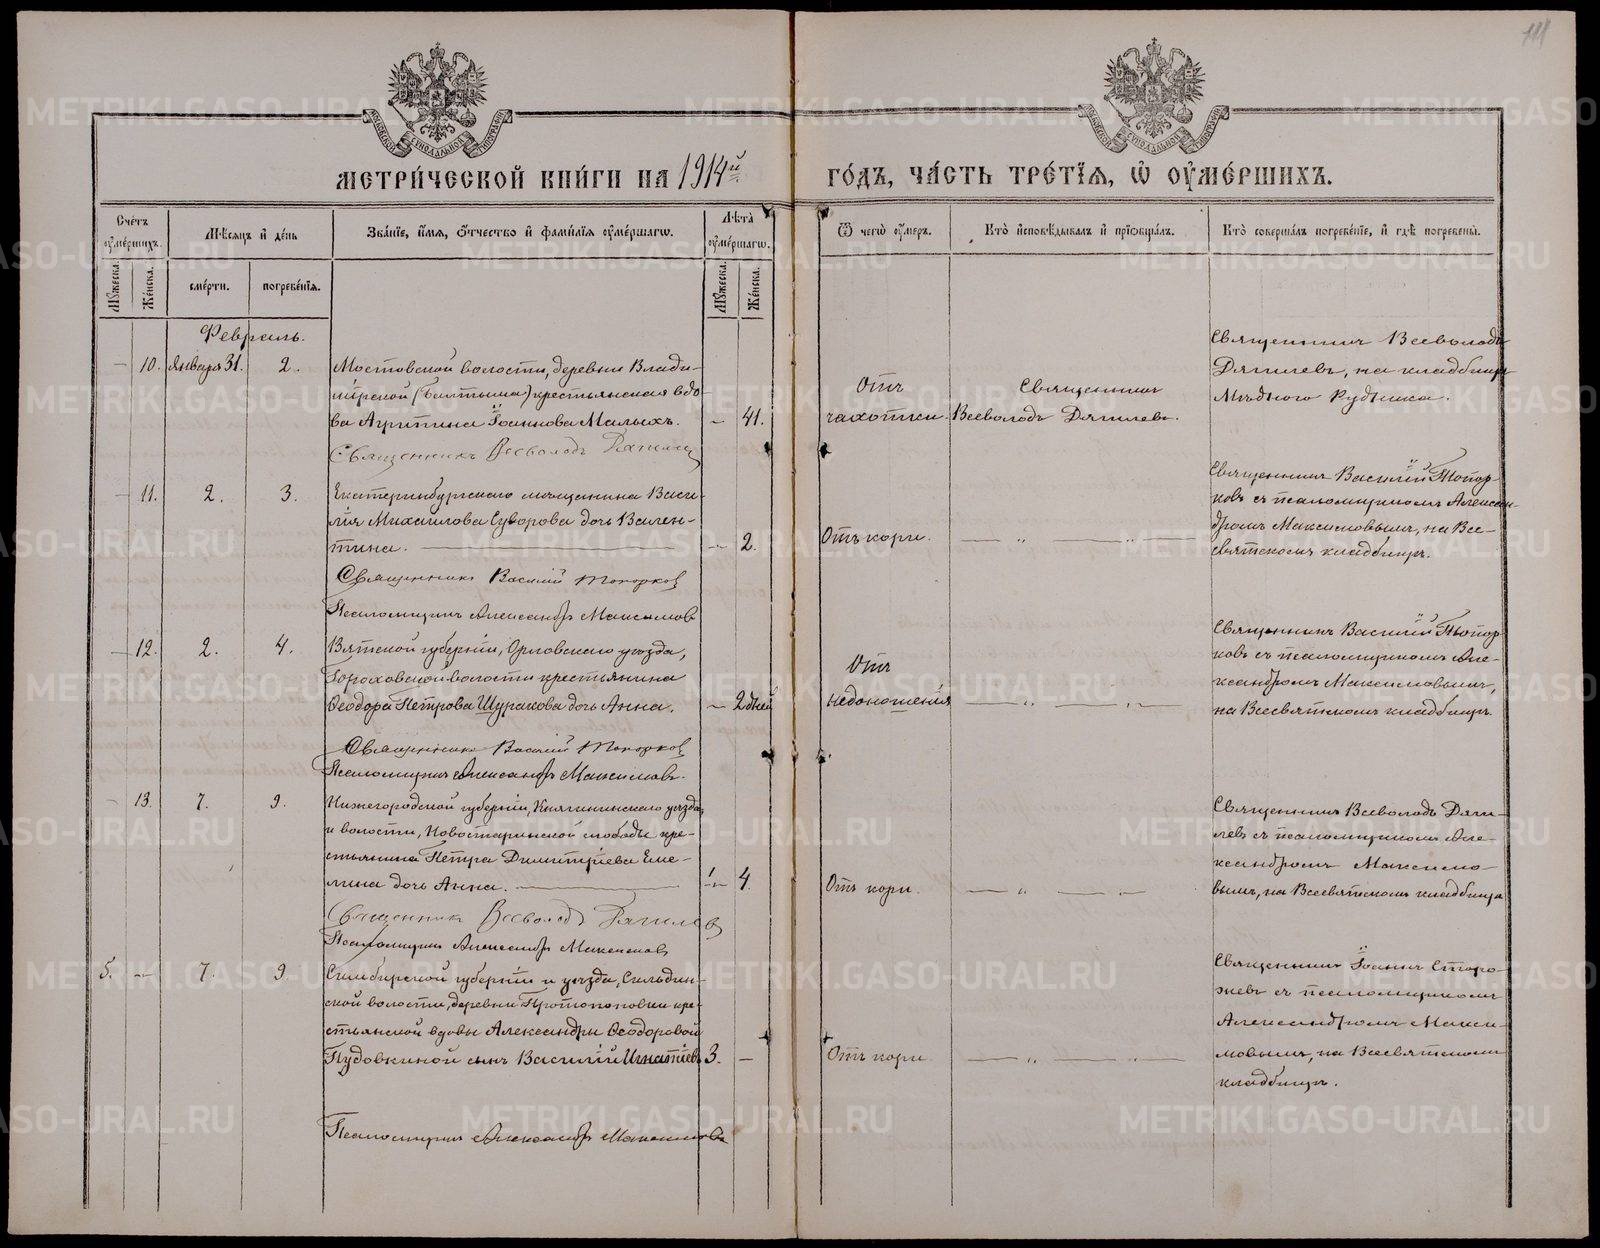 111
МОСКОВСКОЙ СѴНОДАЛЬНОЙ ТИПОГРАФІИ
МОСКОВСКОЙ СѴНОДАЛЬНОЙ ТИПОГРАФІИ
МЕТРИ́ЧЕСКОЙ КНИ́ГИ НА 1914й
ГО́ДЪ, ЧА́СТЬ ТРЕ́ТЇѦ, Ѡ ОУ҆МЕ́РШИХЪ.
Сче́тъ оу҆ме́ршихъ.
Мꙋ́жеска.
Же́нска.
Мѣ́сѧцъ и҆ де́нь
сме́рти.
погребе́нїѧ.
Зва́нїе, и҆́мѧ, ѻ҆́тчество и҆ фами́лїѧ оу҆ме́ршагѡ.
Лѣ́та оу҆ме́ршагѡ.
Мꙋ́жеска.
Же́нска.
Ѿ чегѡ̀ оу҆́меръ.
Кто̀ и҆сповѣ́дывалъ и҆ прїѡбща́лъ.
Кто̀ соверша́лъ погребе́нїе, и҆ гдѣ̀ погребены̀.
Февраль.
— 10. Января 31. 2.
Мостовской волости, деревни Влади-
мірской (Балтыма) крестьянская вдо-
ва Агрипина Іоаннова Малыхъ. — 41.
Священникъ Всеволодъ Дягилев
Отъ
чахотки.
Священникъ
Всеволодъ Дягилевъ.
Священникъ Всеволодъ
Дягилевъ, на кладбищѣ
Мѣднаго Рудника.
— 11. 2. 3.
Екатеринбургскаго мѣщанина Васи-
лія Михаилова Суворова дочь Вален-
тина. — 2.
Священникъ Василій Топорков
Псаломщикъ Александръ Максимов
Отъ кори.
— „ — „ —
Священникъ Василій Топор-
ковъ съ псаломщикомъ Алексан-
дромъ Максимовымъ, на Все-
святскомъ кладбищѣ.
— 12. 2. 4.
Вятской губерніи, Орловскаго уѣзда,
Гороховской волости крестьянина
Ѳеодора Петрова Шуракова дочь Анна. — 2 дней
Священникъ Василій Топорков
Псаломщикъ Александръ Максимовъ.
Отъ
недоношенія
— „ — „ —
Священникъ Василій Топор-
ковъ съ псаломщикомъ Але-
ксандромъ Максимовымъ,
на Всесвятскомъ кладбищѣ.
— 13. 7. 9.
Нижегородской губерніи, Княгининскаго уѣзда
и волости, Новостаринской слободы кре-
стьянина Петра Димитріева Еме-
лина дочь Анна. — 4.
Священник Всеволод Дягилев
Псаломщикъ Александръ Максимов
Отъ кори.
— „ — „ —
Священникъ Всеволодъ Дяги-
левъ съ псаломщикомъ Але-
ксандромъ Максимо-
вымъ, на Всесвятскомъ кладбищѣ
5. — 7. 9.
Симбирской губерніи и уѣзда, Сильдин-
ской волости, деревни Протопоповки кре-
стьянской вдовы Александры Ѳеодоровой
Пудовкиной сынъ Василій Игнатіевъ 3. —
Псаломщикъ Александръ Максимовъ
Отъ кори.
— „ — „ —
Священникъ Іоаннъ Сторо-
жевъ съ псаломщикомъ
Александромъ Макси-
мовымъ, на Всесвятскомъ
кладбищѣ.
METRIKI.GASO-URAL.RU